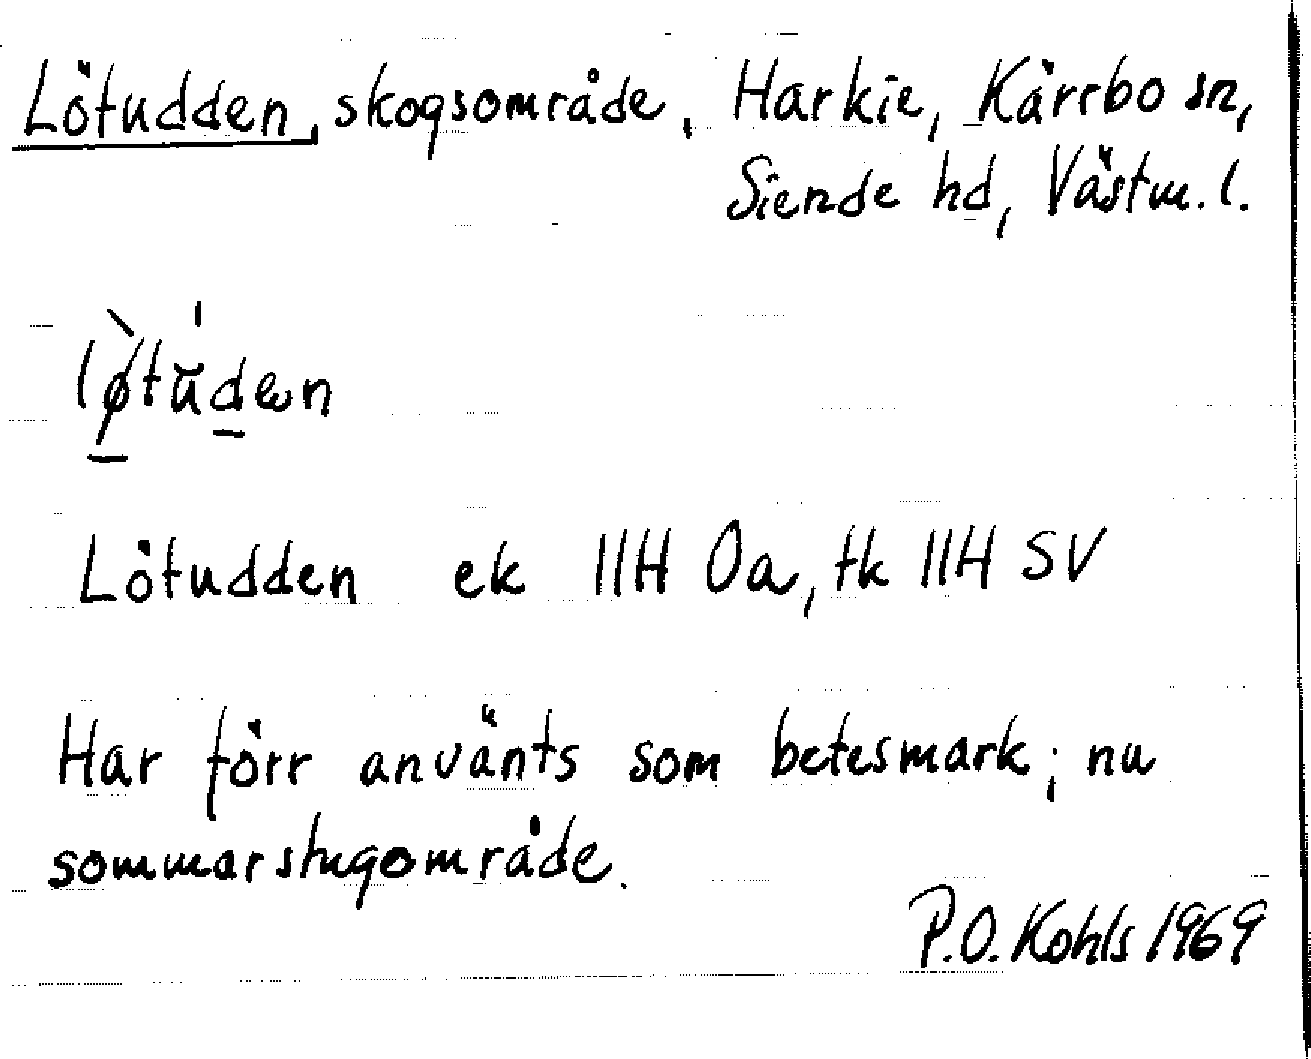 Lötudden, skogsområde. Harkie, Kärrbo sn,
Siende hd, Västm. l.
lø̀tu̍den
Lötudden ek 11H 0a, tk 11H SV
Har förr använts som betesmark; nu
sommarstugområde.
P.O. Kohls 1969